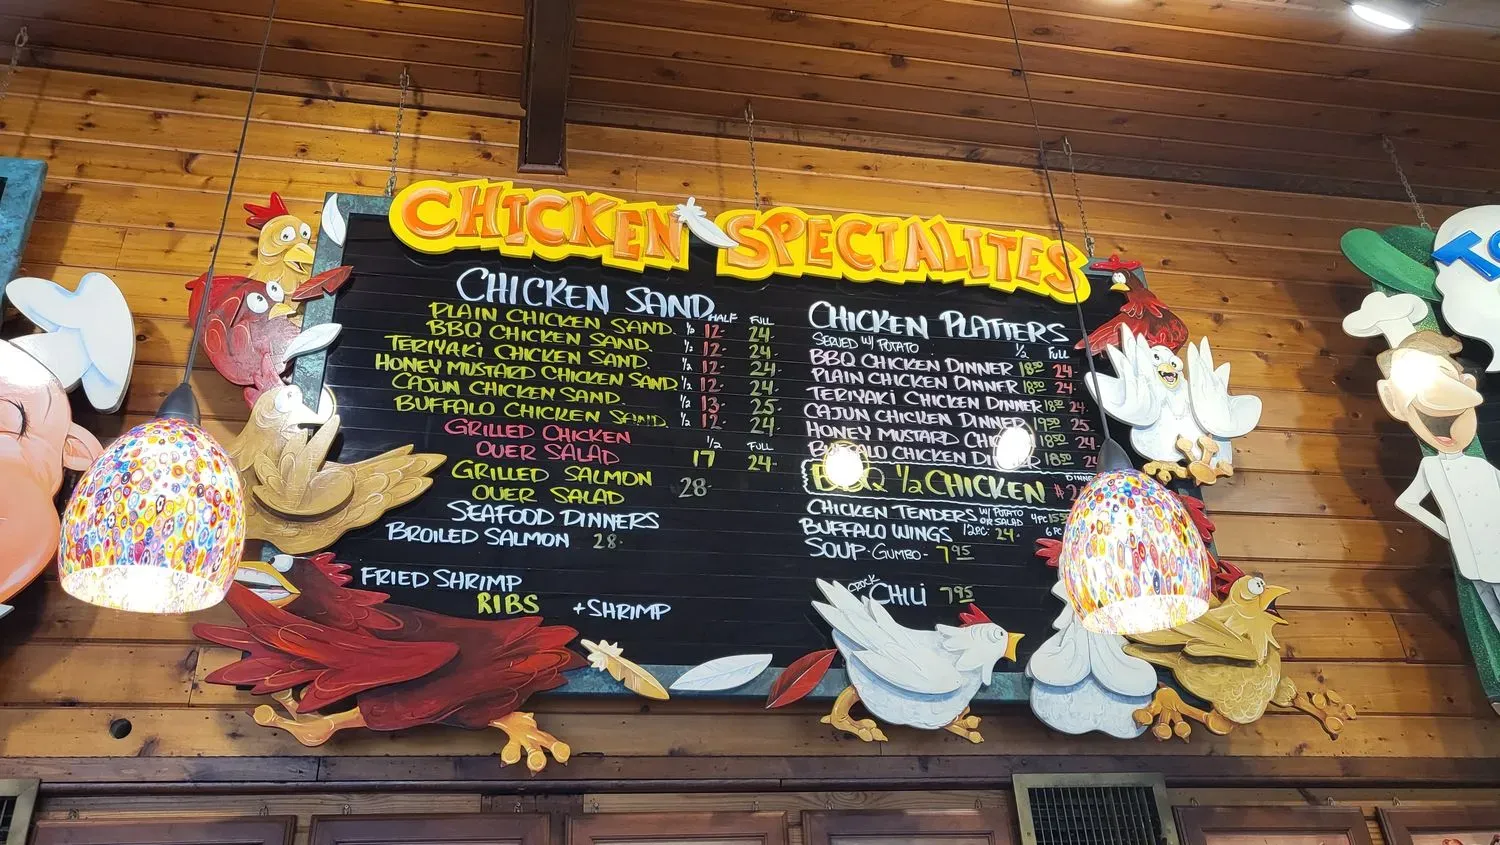 CHICKEN SPECIALITES
CHICKEN SAND. HALF FULL
PLAIN CHICKEN SAND. ½ 12- 24-
BBQ CHICKEN SAND. ½ 12- 24-
TERIYAKI CHICKEN SAND. ½ 12- 24-
HONEY MUSTARD CHICKEN SAND ½ 12- 24-
CAJUN CHICKEN SAND. ½ 13- 25-
BUFFALO CHICKEN SAND. ½ 12- 24-
GRILLED CHICKEN ½ FULL
OVER SALAD 17 24-
GRILLED SALMON
OVER SALAD 28-
SEAFOOD DINNERS
BROILED SALMON 28-
FRIED SHRIMP
RIBS + SHRIMP
CHICKEN PLATTERS
SERVED W/ POTATO ½ FULL
BBQ CHICKEN DINNER 18.50 24-
PLAIN CHICKEN DINNER 18.50 24-
TERIYAKI CHICKEN DINNER 18.50 24-
CAJUN CHICKEN DINNER 19.50 25-
HONEY MUSTARD 18.50 24-
BUFFALO CHICKEN 18.50
BBQ ½ CHICKEN
CHICKEN TENDERS W/ POTATO OR SALAD 4PC
BUFFALO WINGS 12PC. 24-
SOUP - GUMBO - 7.95
CROCK CHILI 7.95